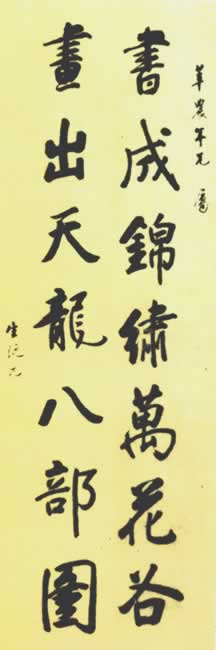 華農年兄
書成錦繡萬花谷
畫出天龍八部圖